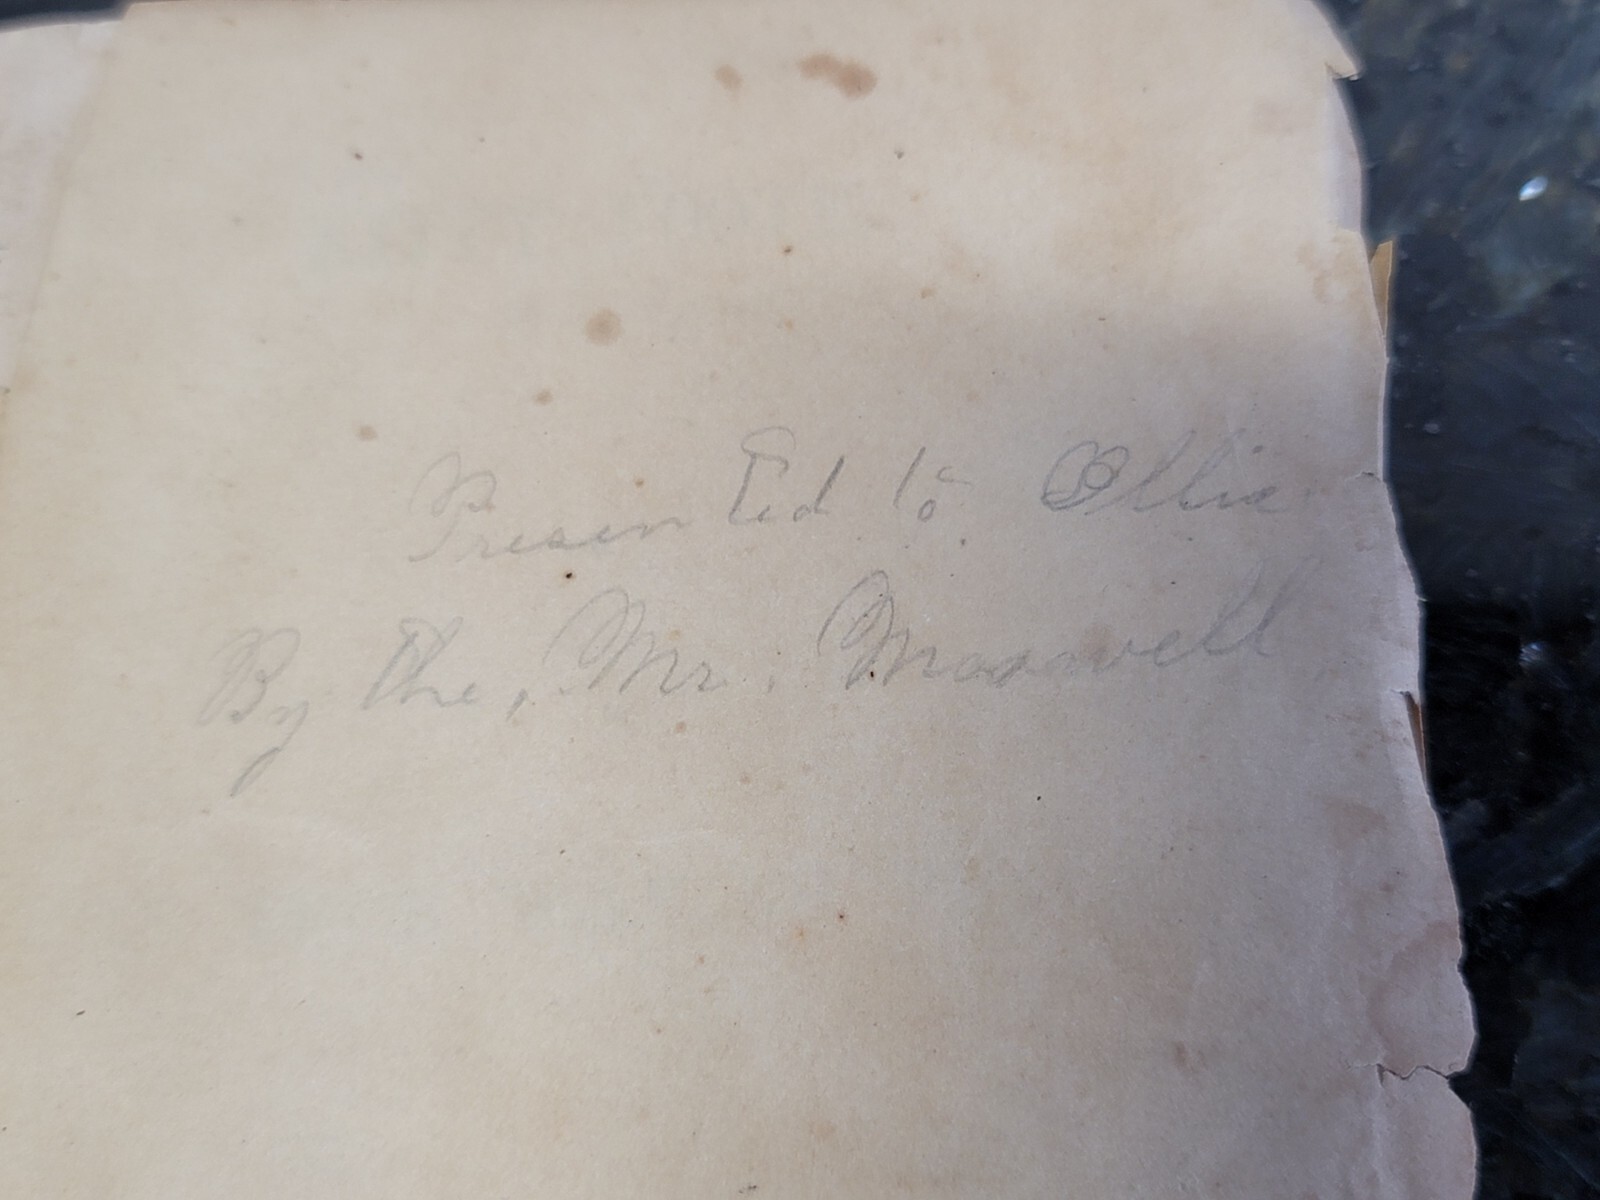 Presented to Ollie
By the, Mr. Maxwell